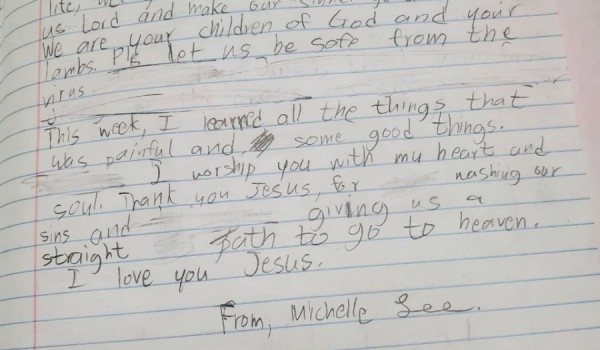 life,
us Lord and make our
We are your children of God and your
lambs. Pls let us be safe from the
virus.
This week, I learned all the things that
was painful and some good things.
I worship you with my heart and
soul. Thank you Jesus, for washing our
sins and giving us a
straight path to go to heaven.
I love you Jesus.
From, Michelle Lee.